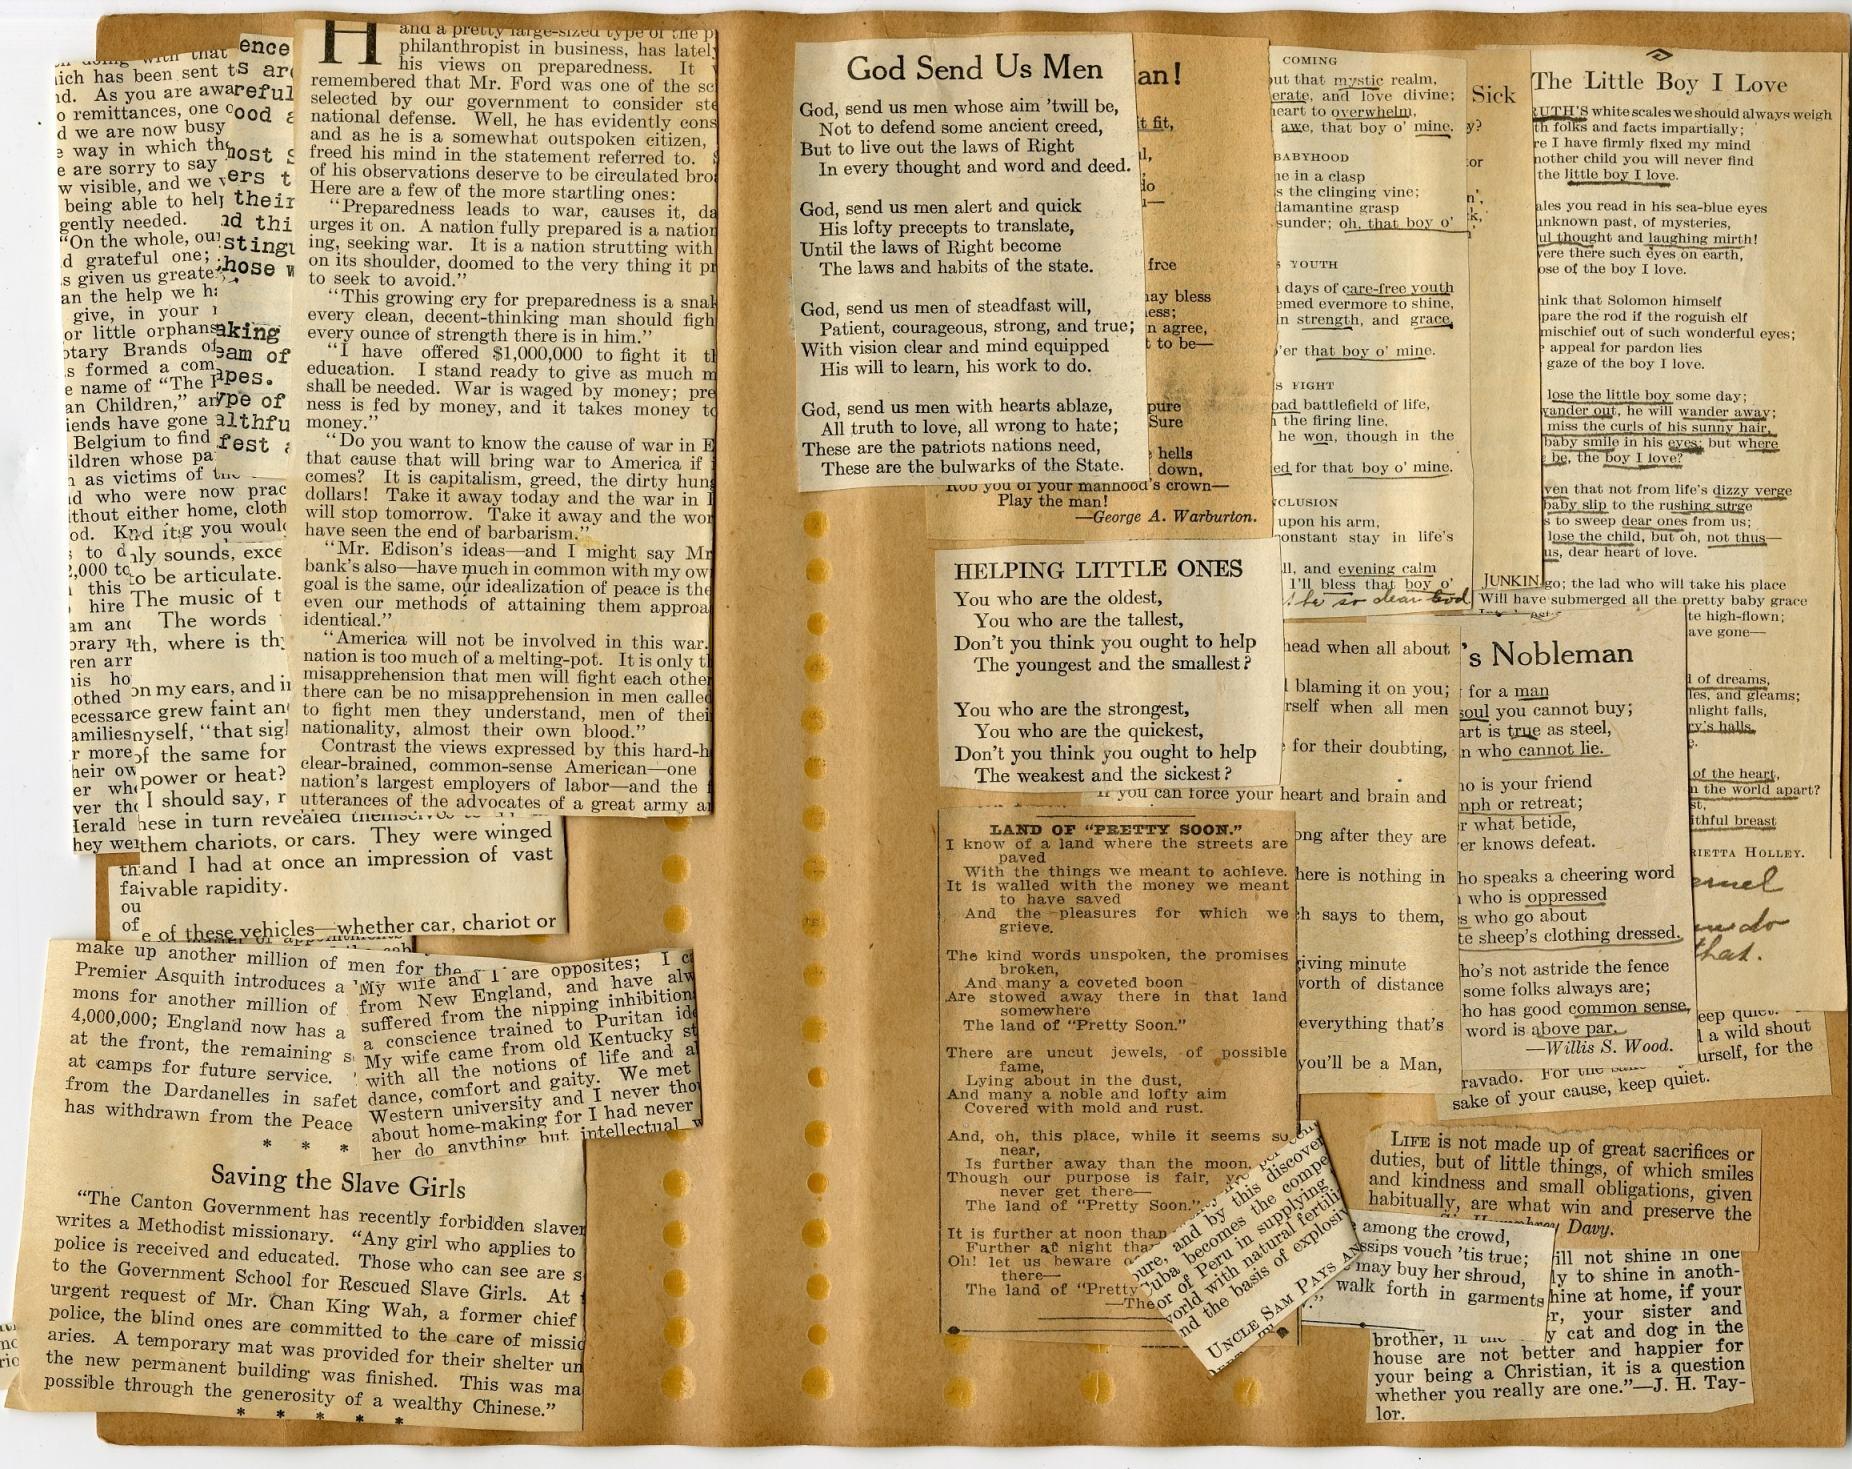 H
and a pretty large-sized type of the p
philanthropist in business, has lately
his views on preparedness. It
remembered that Mr. Ford was one of the sc
selected by our government to consider ste
national defense. Well, he has evidently cons
and as he is a somewhat outspoken citizen,
freed his mind in the statement referred to.
of his observations deserve to be circulated bro
Here are a few of the more startling ones:
"Preparedness leads to war, causes it, da
urges it on. A nation fully prepared is a nation
ing, seeking war. It is a nation strutting with
on its shoulder, doomed to the very thing it pr
to seek to avoid."
"This growing cry for preparedness is a snak
every clean, decent-thinking man should figh
every ounce of strength there is in him."
"I have offered $1,000,000 to fight it th
education. I stand ready to give as much m
shall be needed. War is waged by money; pre
ness is fed by money, and it takes money to
money."
"Do you want to know the cause of war in E
that cause that will bring war to America if
comes? It is capitalism, greed, the dirty hung
dollars! Take it away today and the war in
will stop tomorrow. Take it away and the wor
have seen the end of barbarism."
"Mr. Edison's ideas—and I might say Mr
bank's also—have much in common with my ow
goal is the same, our idealization of peace is the
even our methods of attaining them approa
identical."
"America will not be involved in this war.
nation is too much of a melting-pot. It is only th
misapprehension that men will fight each other
there can be no misapprehension in men called
to fight men they understand, men of thei
nationality, almost their own blood."
Contrast the views expressed by this hard-h
clear-brained, common-sense American—one
nation's largest employers of labor—and the
utterances of the advocates of a great army a
ich has been sent t
d. As you are awa
o remittances, one
d we are now busy
e way in which the
e are sorry to say
w visible, and we
being able to help
gently needed.
"On the whole, ou
d grateful one;
s given us greate
an the help we ha
give, in your
or little orphans
otary Brands of
s formed a com
e name of "The
an Children," a
iends have gone
Belgium to find
ildren whose pa
n as victims of
d who were now prac
thout either home, cloth
you would
ence
s are
reful
ood a
most s
ers t
their
nd thi
sting
hose w
aking
eam of
apes.
ype of
althfu
fest a
ly sounds, exce
to be articulate.
The music of t
The words
th, where is thy
on my ears, and i
ce grew faint and
myself, "that sig
of the same for
power or heat?
I should say,
hese in turn revealed
them chariots, or cars. They were winged
and I had at once an impression of vast
ivable rapidity.
e of these vehicles—whether car, chariot or
make up another million of men for the
Premier Asquith introduces a
mons for another million of
4,000,000; England now has a
at the front, the remaining s
at camps for future service.
from the Dardanelles in safet
has withdrawn from the Peace
* * *
My wife and I are opposites; I c
from New England, and have alw
suffered from the nipping inhibition
a conscience trained to Puritan ide
My wife came from old Kentucky st
with all the notions of life and a
dance, comfort and gaity. We met
Western university and I never tho
about home-making for I had never
her do anything but intellectual w
Saving the Slave Girls
"The Canton Government has recently forbidden slaver
writes a Methodist missionary. "Any girl who applies to
police is received and educated. Those who can see are s
to the Government School for Rescued Slave Girls. At
urgent request of Mr. Chan King Wah, a former chief
police, the blind ones are committed to the care of missio
aries. A temporary mat was provided for their shelter un
the new permanent building was finished. This was ma
possible through the generosity of a wealthy Chinese."
* * * * *
God Send Us Men
God, send us men whose aim 'twill be,
Not to defend some ancient creed,
But to live out the laws of Right
In every thought and word and deed.
God, send us men alert and quick
His lofty precepts to translate,
Until the laws of Right become
The laws and habits of the state.
God, send us men of steadfast will,
Patient, courageous, strong, and true;
With vision clear and mind equipped
His will to learn, his work to do.
God, send us men with hearts ablaze,
All truth to love, all wrong to hate;
These are the patriots nations need,
These are the bulwarks of the State.
an!
t fit,
free
may bless
ess;
n agree,
t to be—
pure
Sure
hells
down,
Rob you of your manhood's crown—
Play the man!
—George A. Warburton.
HELPING LITTLE ONES
You who are the oldest,
You who are the tallest,
Don't you think you ought to help
The youngest and the smallest?
You who are the strongest,
You who are the quickest,
Don't you think you ought to help
The weakest and the sickest?
LAND OF "PRETTY SOON."
I know of a land where the streets are
paved
With the things we meant to achieve.
It is walled with the money we meant
to have saved
And the pleasures for which we
grieve.
The kind words unspoken, the promises
broken,
And many a coveted boon
Are stowed away there in that land
somewhere
The land of "Pretty Soon."
There are uncut jewels, of possible
fame,
Lying about in the dust,
And many a noble and lofty aim
Covered with mold and rust.
And, oh, this place, while it seems so
near,
Is further away than the moon,
Though our purpose is fair,
never get there—
The land of "Pretty Soon."
It is further at noon than
Further at night tha
Oh! let us beware
there—
The land of "Pretty
—The
ure, and by this discover
Cuba becomes the compe
or of Peru in supplying
world with natural fertili
nd the basis of explosiv
UNCLE SAM PAYS AN
COMING
ut that mystic realm,
erate, and love divine;
heart to overwhelm,
awe, that boy o' mine.
BABYHOOD
e in a clasp
s the clinging vine;
damantine grasp
sunder; oh, that boy o'
YOUTH
days of care-free youth
emed evermore to shine,
in strength, and grace,
'er that boy o' mine.
S FIGHT
oad battlefield of life,
the firing line,
he won, though in the
ed for that boy o' mine.
NCLUSION
upon his arm,
constant stay in life's
ll, and evening calm
I'll bless that boy o'
be so dear God
Sick
y?
or
JUNKIN
The Little Boy I Love
RUTH'S white scales we should always weigh
th folks and facts impartially;
re I have firmly fixed my mind
nother child you will never find
the little boy I love.
ales you read in his sea-blue eyes
unknown past, of mysteries,
ul thought and laughing mirth!
vere there such eyes on earth,
ose of the boy I love.
hink that Solomon himself
pare the rod if the roguish elf
mischief out of such wonderful eyes;
appeal for pardon lies
gaze of the boy I love.
lose the little boy some day;
wander out, he will wander away;
miss the curls of his sunny hair,
baby smile in his eyes; but where
be, the boy I love?
ven that not from life's dizzy verge
baby slip to the rushing surge
s to sweep dear ones from us;
lose the child, but oh, not thus—
us, dear heart of love.
go; the lad who will take his place
Will have submerged all the pretty baby grace
te high-flown;
ave gone—
l of dreams,
les, and gleams;
nlight falls,
ry's halls,
of the heart,
n the world apart?
st,
ithful breast
RIETTA HOLLEY.
do
that.
head when all about
blaming it on you;
rself when all men
for their doubting,
If you can force your heart and brain and
ong after they are
here is nothing in
h says to them,
giving minute
worth of distance
everything that's
you'll be a Man,
's Nobleman
for a man
soul you cannot buy;
art is true as steel,
n who cannot lie.
ho is your friend
mph or retreat;
r what betide,
er knows defeat.
ho speaks a cheering word
who is oppressed
s who go about
te sheep's clothing dressed.
ho's not astride the fence
some folks always are;
ho has good common sense,
word is above par.
—Willis S. Wood.
eep quiet.
a wild shout
urself, for the
ravado. For the
sake of your cause, keep quiet.
LIFE is not made up of great sacrifices or
duties, but of little things, of which smiles
and kindness and small obligations, given
habitually, are what win and preserve the
Humphrey Davy.
among the crowd,
ssips vouch 'tis true;
may buy her shroud,
walk forth in garments
ill not shine in one
ly to shine in anoth-
hine at home, if your
r, your sister and
brother, if the y cat and dog in the
house are not better and happier for
your being a Christian, it is a question
whether you really are one."—J. H. Tay-
lor.